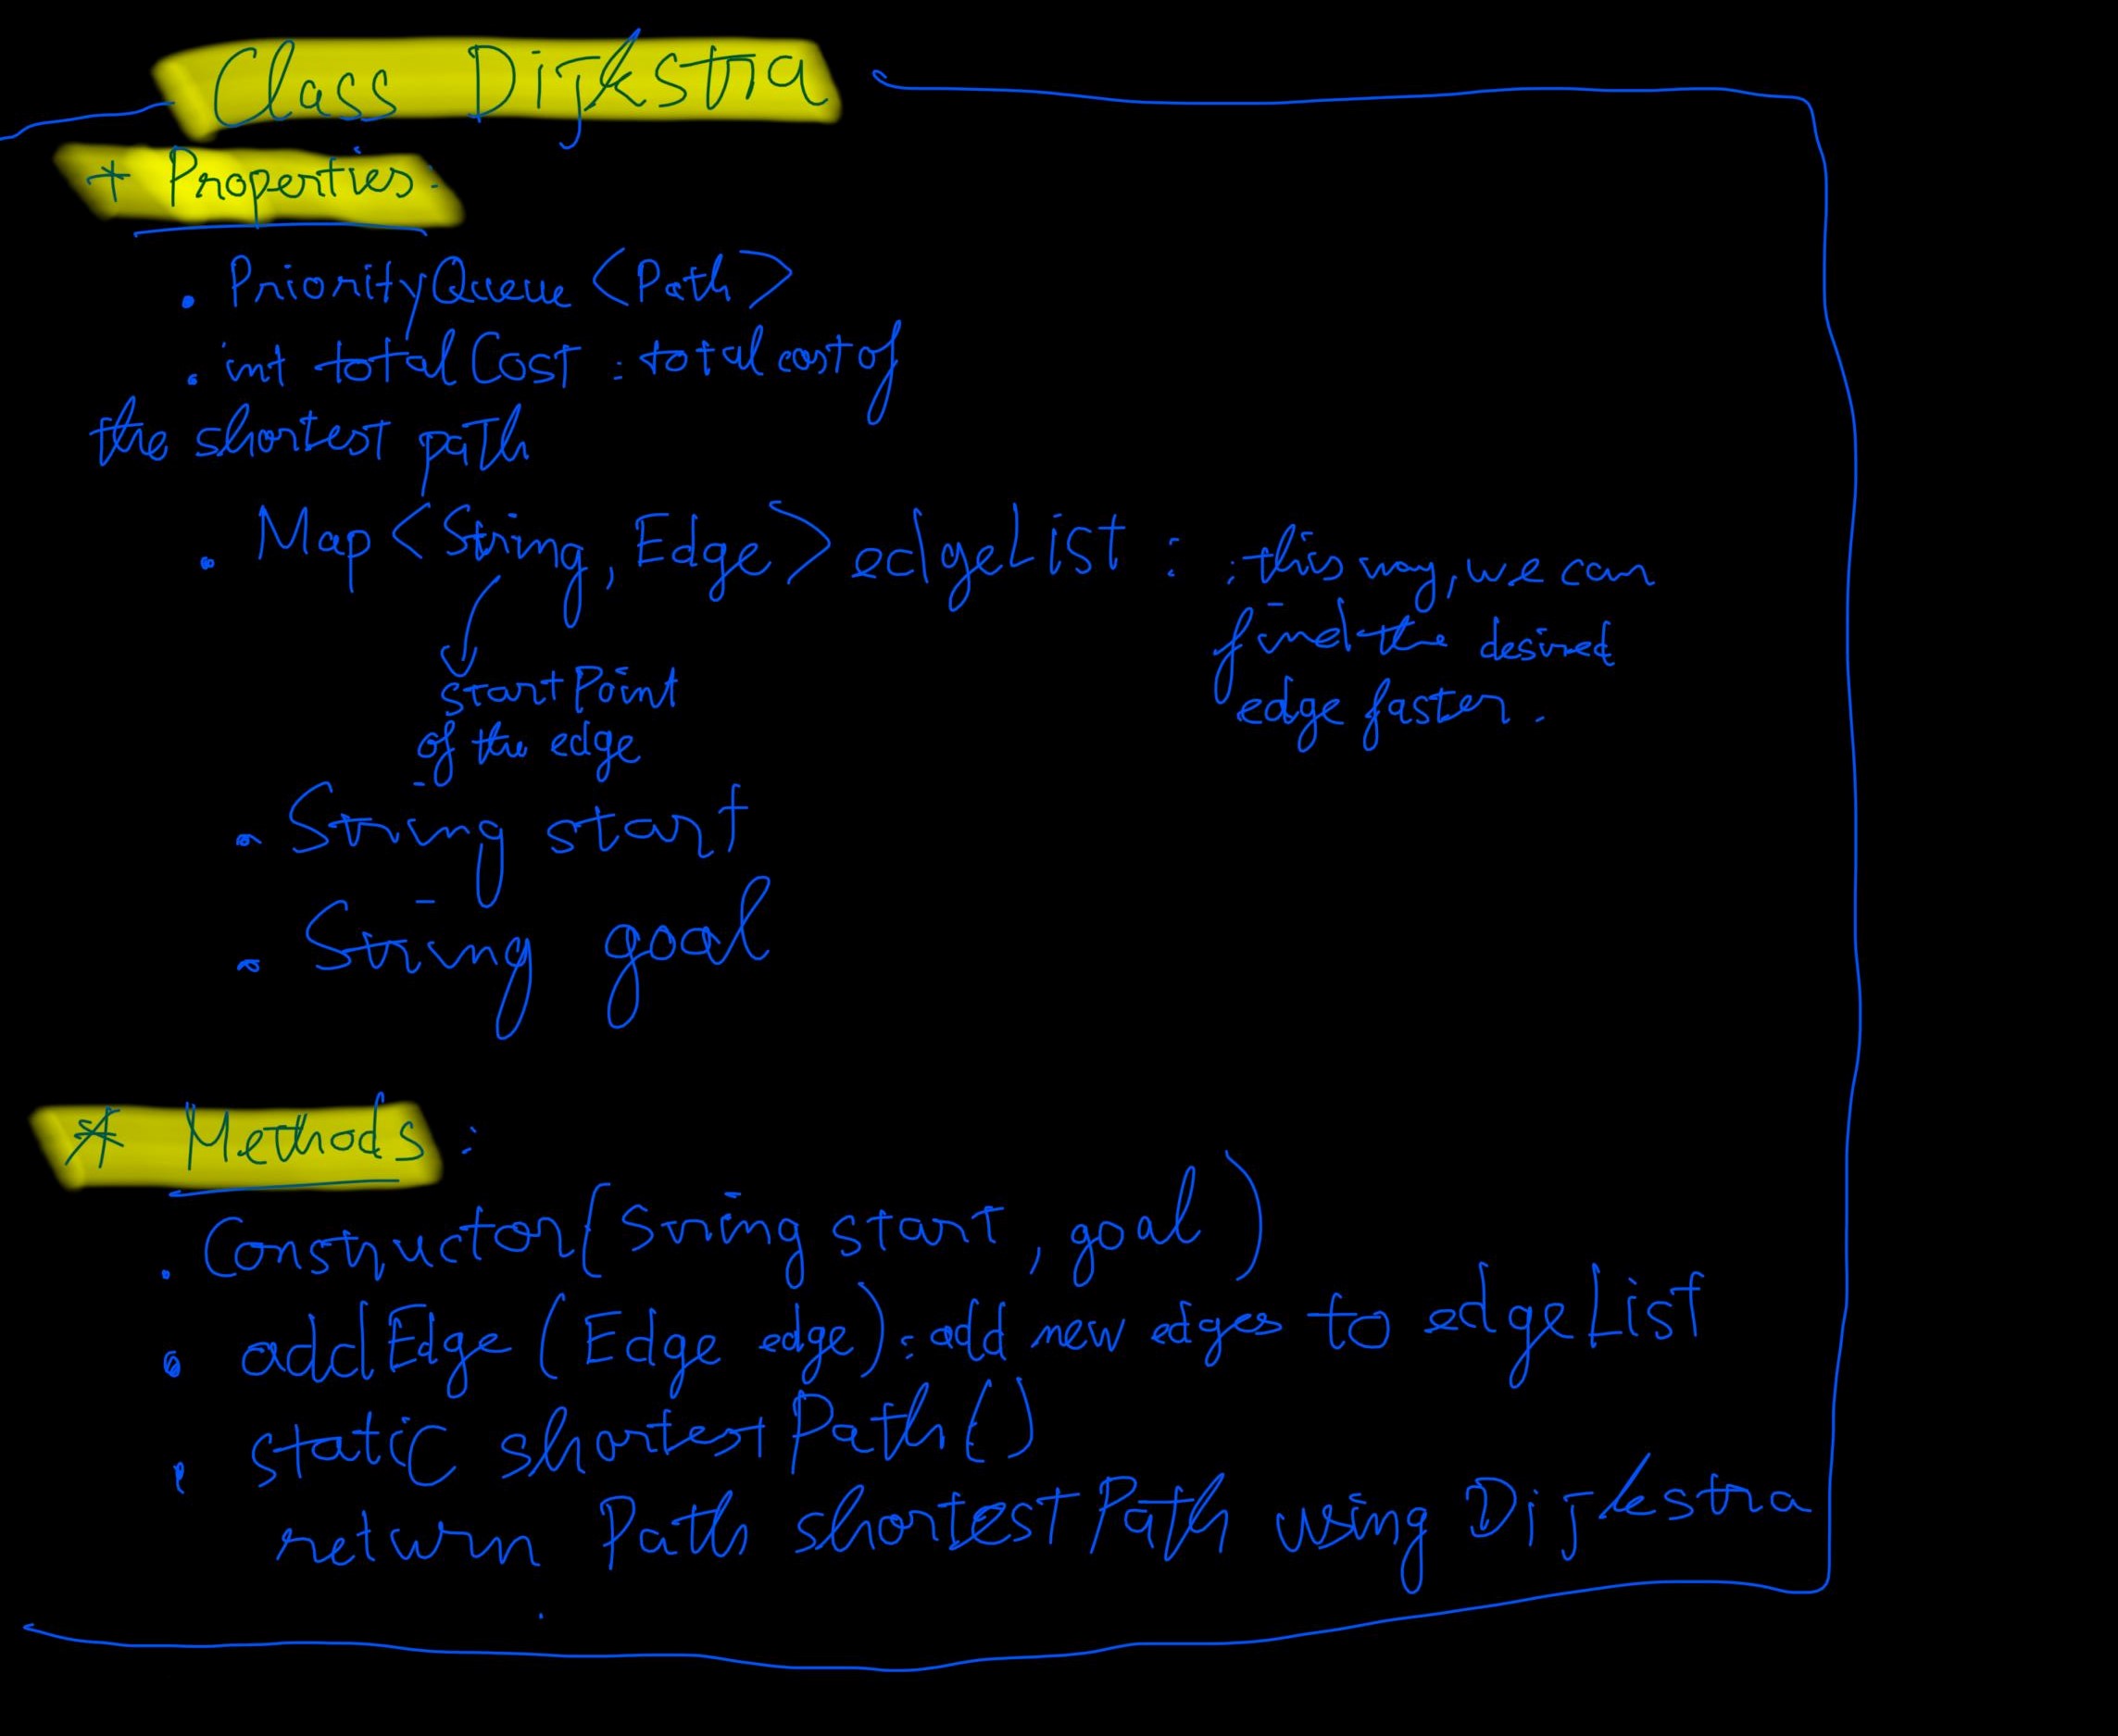 Class Dijkstra
+ Properties:
. PriorityQueue <Path>
. int totalCost : total cost of
the shortest path
. Map <String, Edge> edgeList : : this way, we can
find the desired
edge faster.
startPoint
of the edge
. String start
. String goal
* Methods :
. Constructor(String start, goal)
. addEdge (Edge edge) : add new edges to edgeList
. static shortestPath()
return Path shortestPath using Dijkstra
.